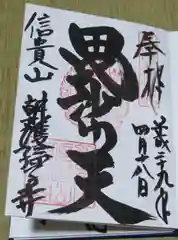 奉拝
平成二十九年
四月十八日
毘沙門天
信貴山
朝護孫子寺